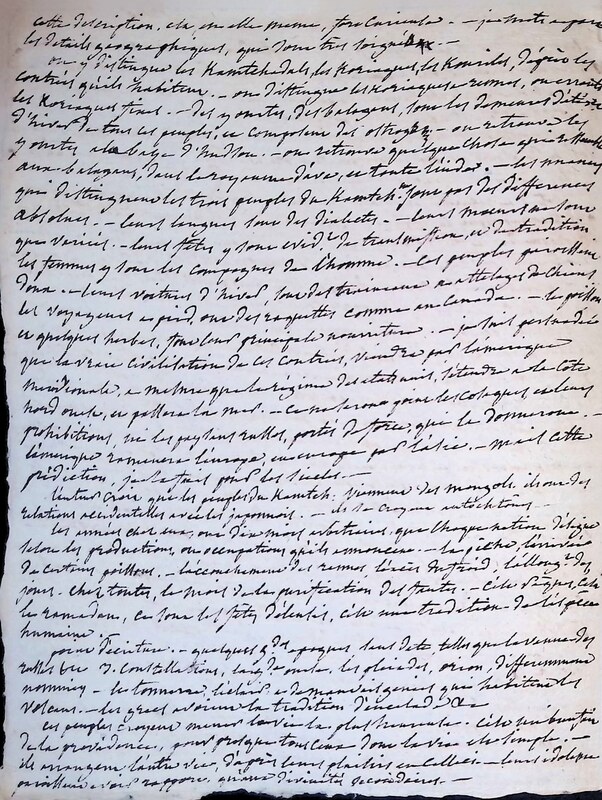 cette description, est en elle même, fort curieuse. — je
les details geographiques, que sont très soignés. —
on y distingue les Kamtchadals, les Koriaques, les Kouriles, d'après les
contrées qu'ils habitent. — on distingue les Koriaques a rennes, ou errants
les Koriaques fixes. — des yourtes, des balagans, sont les demeures d'été et
d'hiver de tous ces peuples, et composent des ostrogs — on retrouve les
yourtes a la baye d'hudson. — on retrouve quelque chose
aux balagans, dans le royaume d'ava, et toute l'inde. — les nuances
qui distinguent les trois peuples du Kamtch. sont pas des differences
absolues. — leurs langues sont des dialectes. — leurs moeurs ne sont
que variées. — leurs fêtes y sont evid.t de transmission, et de tradition
les femmes y sont les compagnes de l'homme. — ces peuples paroissent
doux. — leurs voitures d'hiver, sont des traineaux a attelages de chiens
les voyageurs a pied, ont des raquettes comme au Canada. — les poissons
et quelques herbes, font leur principale nourriture. — je suis persuadée
que la vraie civilisation de ces contrées, viendra par l'amerique
meridionale, a mesure que le regime des etats unis, s'etendra a la côte
nord ouest, et passera la mer. — ce ne seront point les cosaques et leurs
prohibitions, ni les paysans russes, portés de force, qui la donneront. —
l'amerique ramenera l'europe, en europe par l'asie. — mais cette
prédiction, je la fais pour des siecles —
l'auteur croit que les peuples du Kamtch. viennent des mongols. ils ont des
relations accidentelles avec les japonnois. — ils se croyent autochtones. —
les années chez eux, ont dix mois arbitraires, que chaque nation désigne
selon les productions, ou occupations qu'ils annoncent. — la pêche, l'arrivée
de certains poissons. — l'accouchement des rennes, l'excès du froid, l'allong.t des
jours. chez toutes, le mois de la purification des fautes. — c'est Pâques, c'est
le ramadan, ce sont les fêtes d'eleusis, c'est une tradition de l'espèce
humaine
point d'ecriture. — quelques époques, sans date telles que la venue des
russes &c 3 constellations, la g.de ourse, les pleiades, orion, differemment
nommées — le tonnerre, l'eclair, a de mauvais genies qui habitent les
volcans. — les grecs avoient la tradition d'encelade &c
ces peuples croyent mener la vie la plus heureuse. c'est un bienfait
de la providence, pour presque tous ceux dont la vie est simple. —
ils arrangent l'autre vie, d'après leurs plaisirs en celle-ci. — leurs idoles
avoir rapport, qu'aux divinités secondaires. —